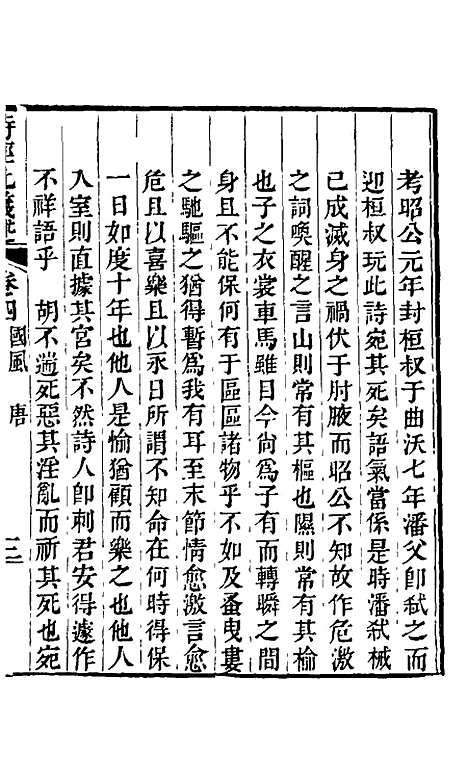 考昭公元年封桓叔于曲沃七年潘父卽弑之而
迎桓叔玩此詩宛其死矣語氣當係是時潘弑械
已成滅身之禍伏于肘腋而昭公不知故作危激
之詞喚醒之言山則常有其樞也隰則常有其榆
也子之衣裳車馬雖目今尙爲子有而轉瞬之間
身且不能保何有于區區諸物乎不如及蚤曳婁
之馳驅之猶得暫爲我有耳至末節情愈激言愈
危且以喜樂且以永日所謂不知命在何時得保
一日如度十年也他人是愉猶顧而樂之也他人
入室則直據其宮矣不然詩人卽刺君安得遽作
不祥語乎　胡不遄死惡其淫亂而祈其死也宛
卷四　國風　唐